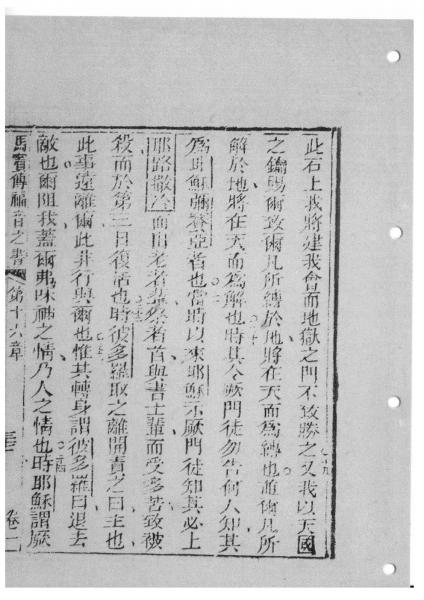 此石上我將建我會而地獄之門不致勝之又我以天國
之鑰賜爾致爾凡所縛於地將在天而為縛也並爾凡所
解於地將在天而為解也時其令厥門徒勿告何人知其
為耶穌彌賽亞者也當時以來耶穌示厥門徒知其必上
耶路撒冷而由老者祭者首與書士輩而受多苦致被
殺而於第三日復活也時彼多羅取之離開責之曰主也
此事遠離爾此非行與爾也惟其轉身謂彼多羅曰退去
敵也爾阻我蓋爾弗味神之情乃人之情也時耶穌謂厥
馬竇傳福音之書 第十六章 卷一